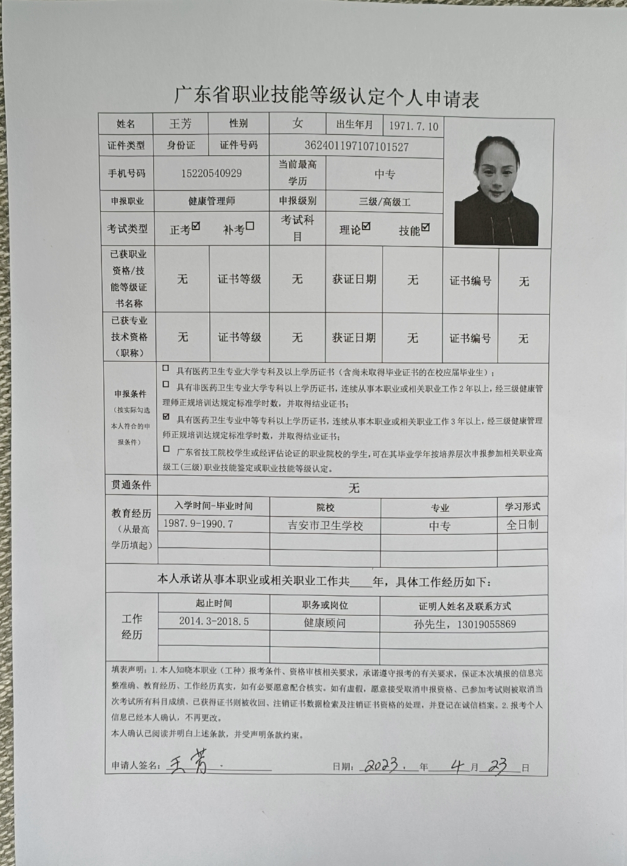 广东省职业技能等级认定个人申请表
姓名 王芳 性别 女 出生年月 1971.7.10
证件类型 身份证 证件号码 362401197107101527
手机号码 15220540929 当前最高学历 中专
申报职业 健康管理师 申报级别 三级/高级工
考试类型 正考☑ 补考☐ 考试科目 理论☑ 技能☑
已获职业资格/技能等级证书名称 无 证书等级 无 获证日期 无 证书编号 无
已获专业技术资格(职称) 无 证书等级 无 获证日期 无 证书编号 无
申报条件(按实际勾选本人符合的申报条件)
☐ 具有医药卫生专业大学专科及以上学历证书(含尚未取得毕业证书的在校应届毕业生);
☐ 具有非医药卫生专业大学专科及以上学历证书,连续从事本职业或相关职业工作2年以上,经三级健康管
理师正规培训达规定标准学时数,并取得结业证书;
☑ 具有医药卫生专业中等专科以上学历证书,连续从事本职业或相关职业工作3年以上,经三级健康管理
师正规培训达规定标准学时数,并取得结业证书;
☐ 广东省技工院校学生或经评估论证的职业院校的学生,可在其毕业学年按培养层次申报参加相关职业高
级工(三级)职业技能鉴定或职业技能等级认定。
贯通条件 无
教育经历(从最高学历填起)
入学时间-毕业时间 院校 专业 学习形式
1987.9-1990.7 吉安市卫生学校 中专 全日制
本人承诺从事本职业或相关职业工作共____年,具体工作经历如下:
工作经历
起止时间 职务或岗位 证明人姓名及联系方式
2014.3-2018.5 健康顾问 孙先生,13019055869
填表声明:1.本人知晓本职业(工种)报考条件、资格审核相关要求,承诺遵守报考的有关要求,保证本次填报的信息完
整准确、教育经历、工作经历真实,如有必要愿意配合核实,如有虚假,愿意接受取消申报资格、已参加考试则被取消当
次考试所有科目成绩、已获得证书则被收回、注销证书数据检索及注销证书资格的处理,并登记在诚信档案。2.报考个人
信息已经本人确认,不再更改。
本人确认已阅读并明白上述条款,并受声明条款约束。
申请人签名: 王芳 日期: 2023. 年 4 月 23 日